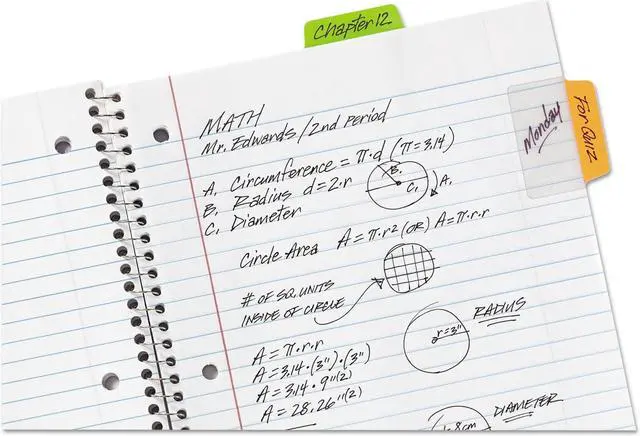 Chapter 12
For Quiz
Monday
MATH
Mr. Edwards / 2nd Period
A. Circumference = π·d (π=3.14)
B. Radius d=2·r
C. Diameter
B.
C.
A.
Circle Area A=π·r² (OR) A=π·r·r
# OF SQ. UNITS
INSIDE OF CIRCLE
RADIUS
r=3"
A=π·r·r
A=3.14·(3")·(3")
A=3.14·9"(2)
A=28.26"(2)
DIAMETER
8cm